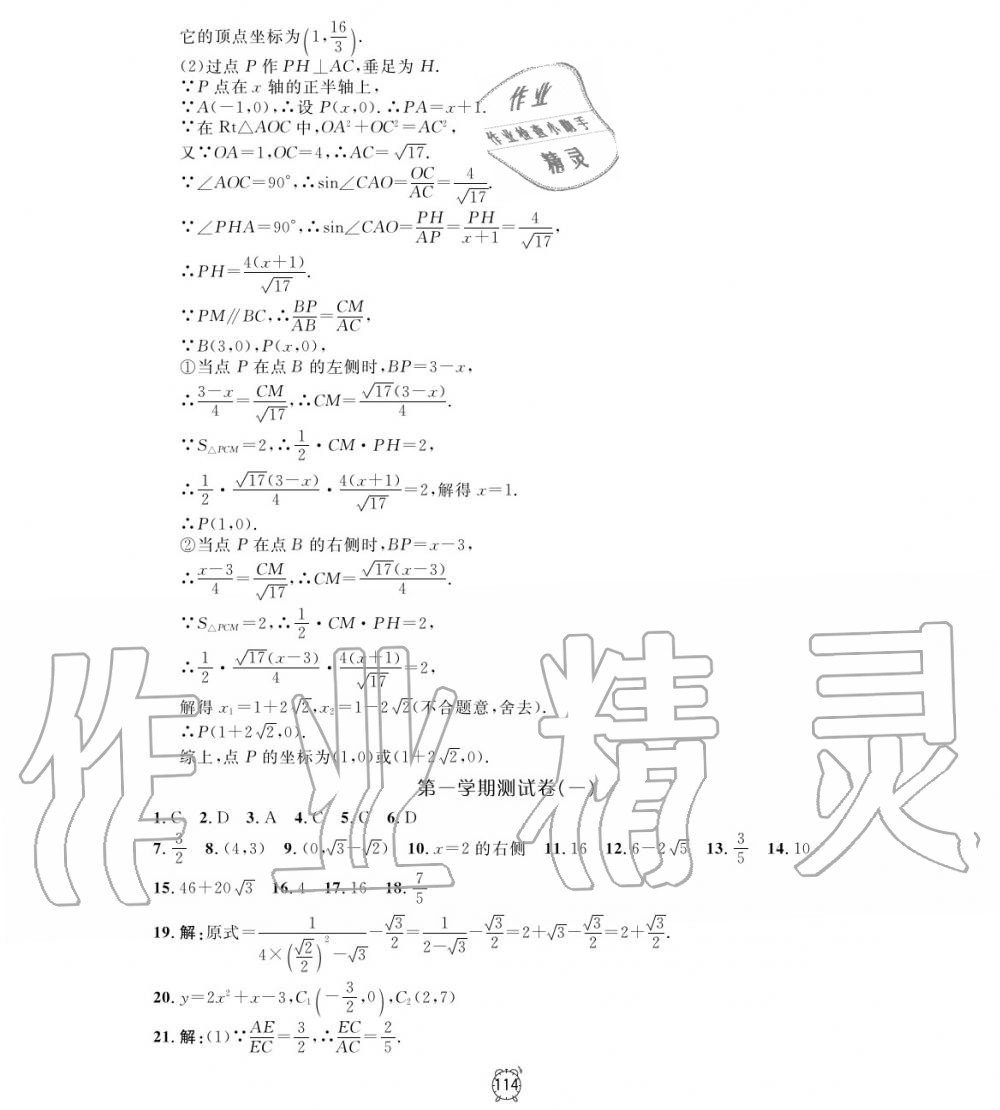 它的顶点坐标为(1,16/3).
(2)过点 P 作 PH⊥AC,垂足为 H.
∵P 点在 x 轴的正半轴上,
∵A(−1,0),∴设 P(x,0).∴PA=x+1.
∵在 Rt△AOC 中,OA²+OC²=AC²,
又∵OA=1,OC=4,∴AC=√17.
∵∠AOC=90°,∴sin∠CAO=OC/AC=4/√17.
∵∠PHA=90°,∴sin∠CAO=PH/AP=PH/(x+1)=4/√17,
∴PH=4(x+1)/√17.
∵PM∥BC,∴BP/AB=CM/AC,
∵B(3,0),P(x,0),
①当点 P 在点 B 的左侧时,BP=3−x,
∴(3−x)/4=CM/√17,∴CM=√17(3−x)/4.
∵S△PCM=2,∴1/2·CM·PH=2,
∴1/2·√17(3−x)/4·4(x+1)/√17=2,解得 x=1.
∴P(1,0).
②当点 P 在点 B 的右侧时,BP=x−3,
∴(x−3)/4=CM/√17,∴CM=√17(x−3)/4.
∵S△PCM=2,∴1/2·CM·PH=2,
∴1/2·√17(x−3)/4·4(x+1)/√17=2,
解得 x₁=1+2√2,x₂=1−2√2(不合题意,舍去).
∴P(1+2√2,0).
综上,点 P 的坐标为(1,0)或(1+2√2,0).
第一学期测试卷(一)
1.C 2.D 3.A 4.C 5.C 6.D
7.3/2 8.(4,3) 9.(0,√3−√2) 10.x=2 的右侧 11.16 12.6−2√5 13.3/5 14.10
15.46+20√3 16.4 17.16 18.7/5
19.解:原式=1/(4×(√2/2)²−√3)−√3/2=1/(2−√3)−√3/2=2+√3−√3/2=2+√3/2.
20.y=2x²+x−3,C₁(−3/2,0),C₂(2,7)
21.解:(1)∵AE/EC=3/2,∴EC/AC=2/5.
114
作业
作业检查小助手
精灵
作业精灵